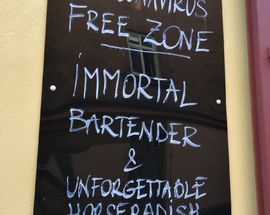 FREE ZONE
IMMORTAL
BARTENDER
&
UNFORGETTABLE
HORSERADISH